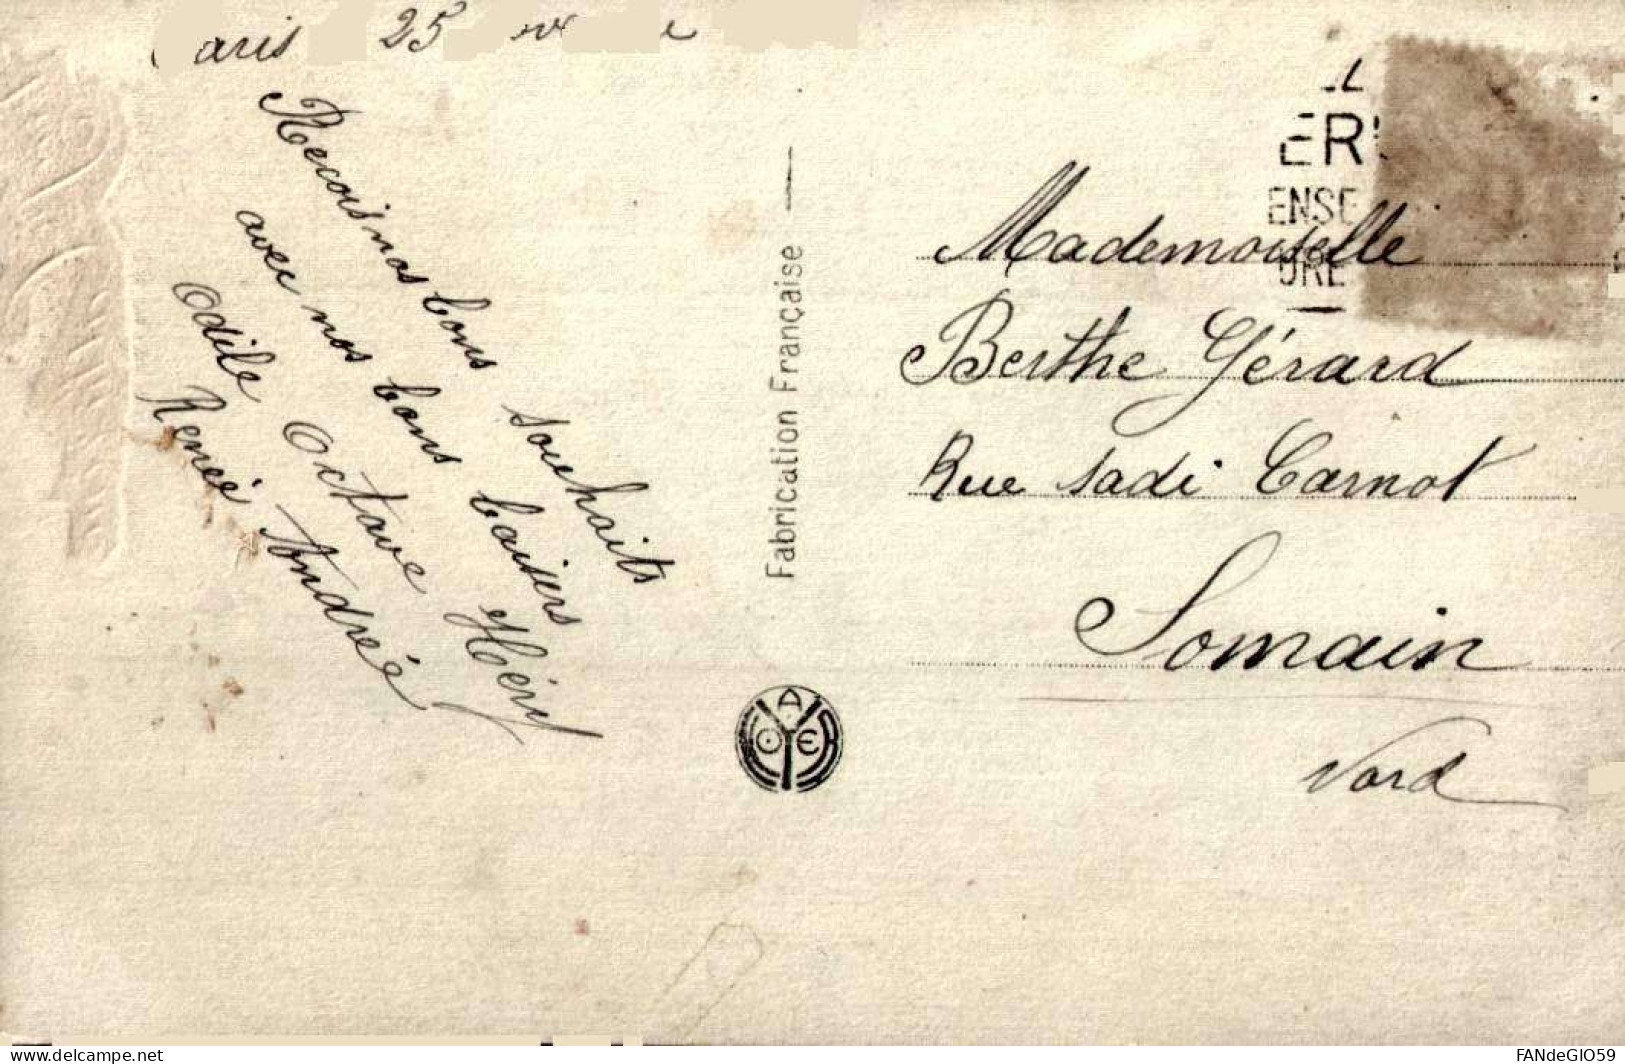 aris 25
Recois nos bons souhaits
avec nos bons baisers
Odile Octave Héry
Renée Andrée
Fabrication Française
ER
ENSE
URE
Mademoiselle
Berthe Gérard
Rue Sadi Carnot
Somain
Nord
www.delcampe.net
FANdeGIO59